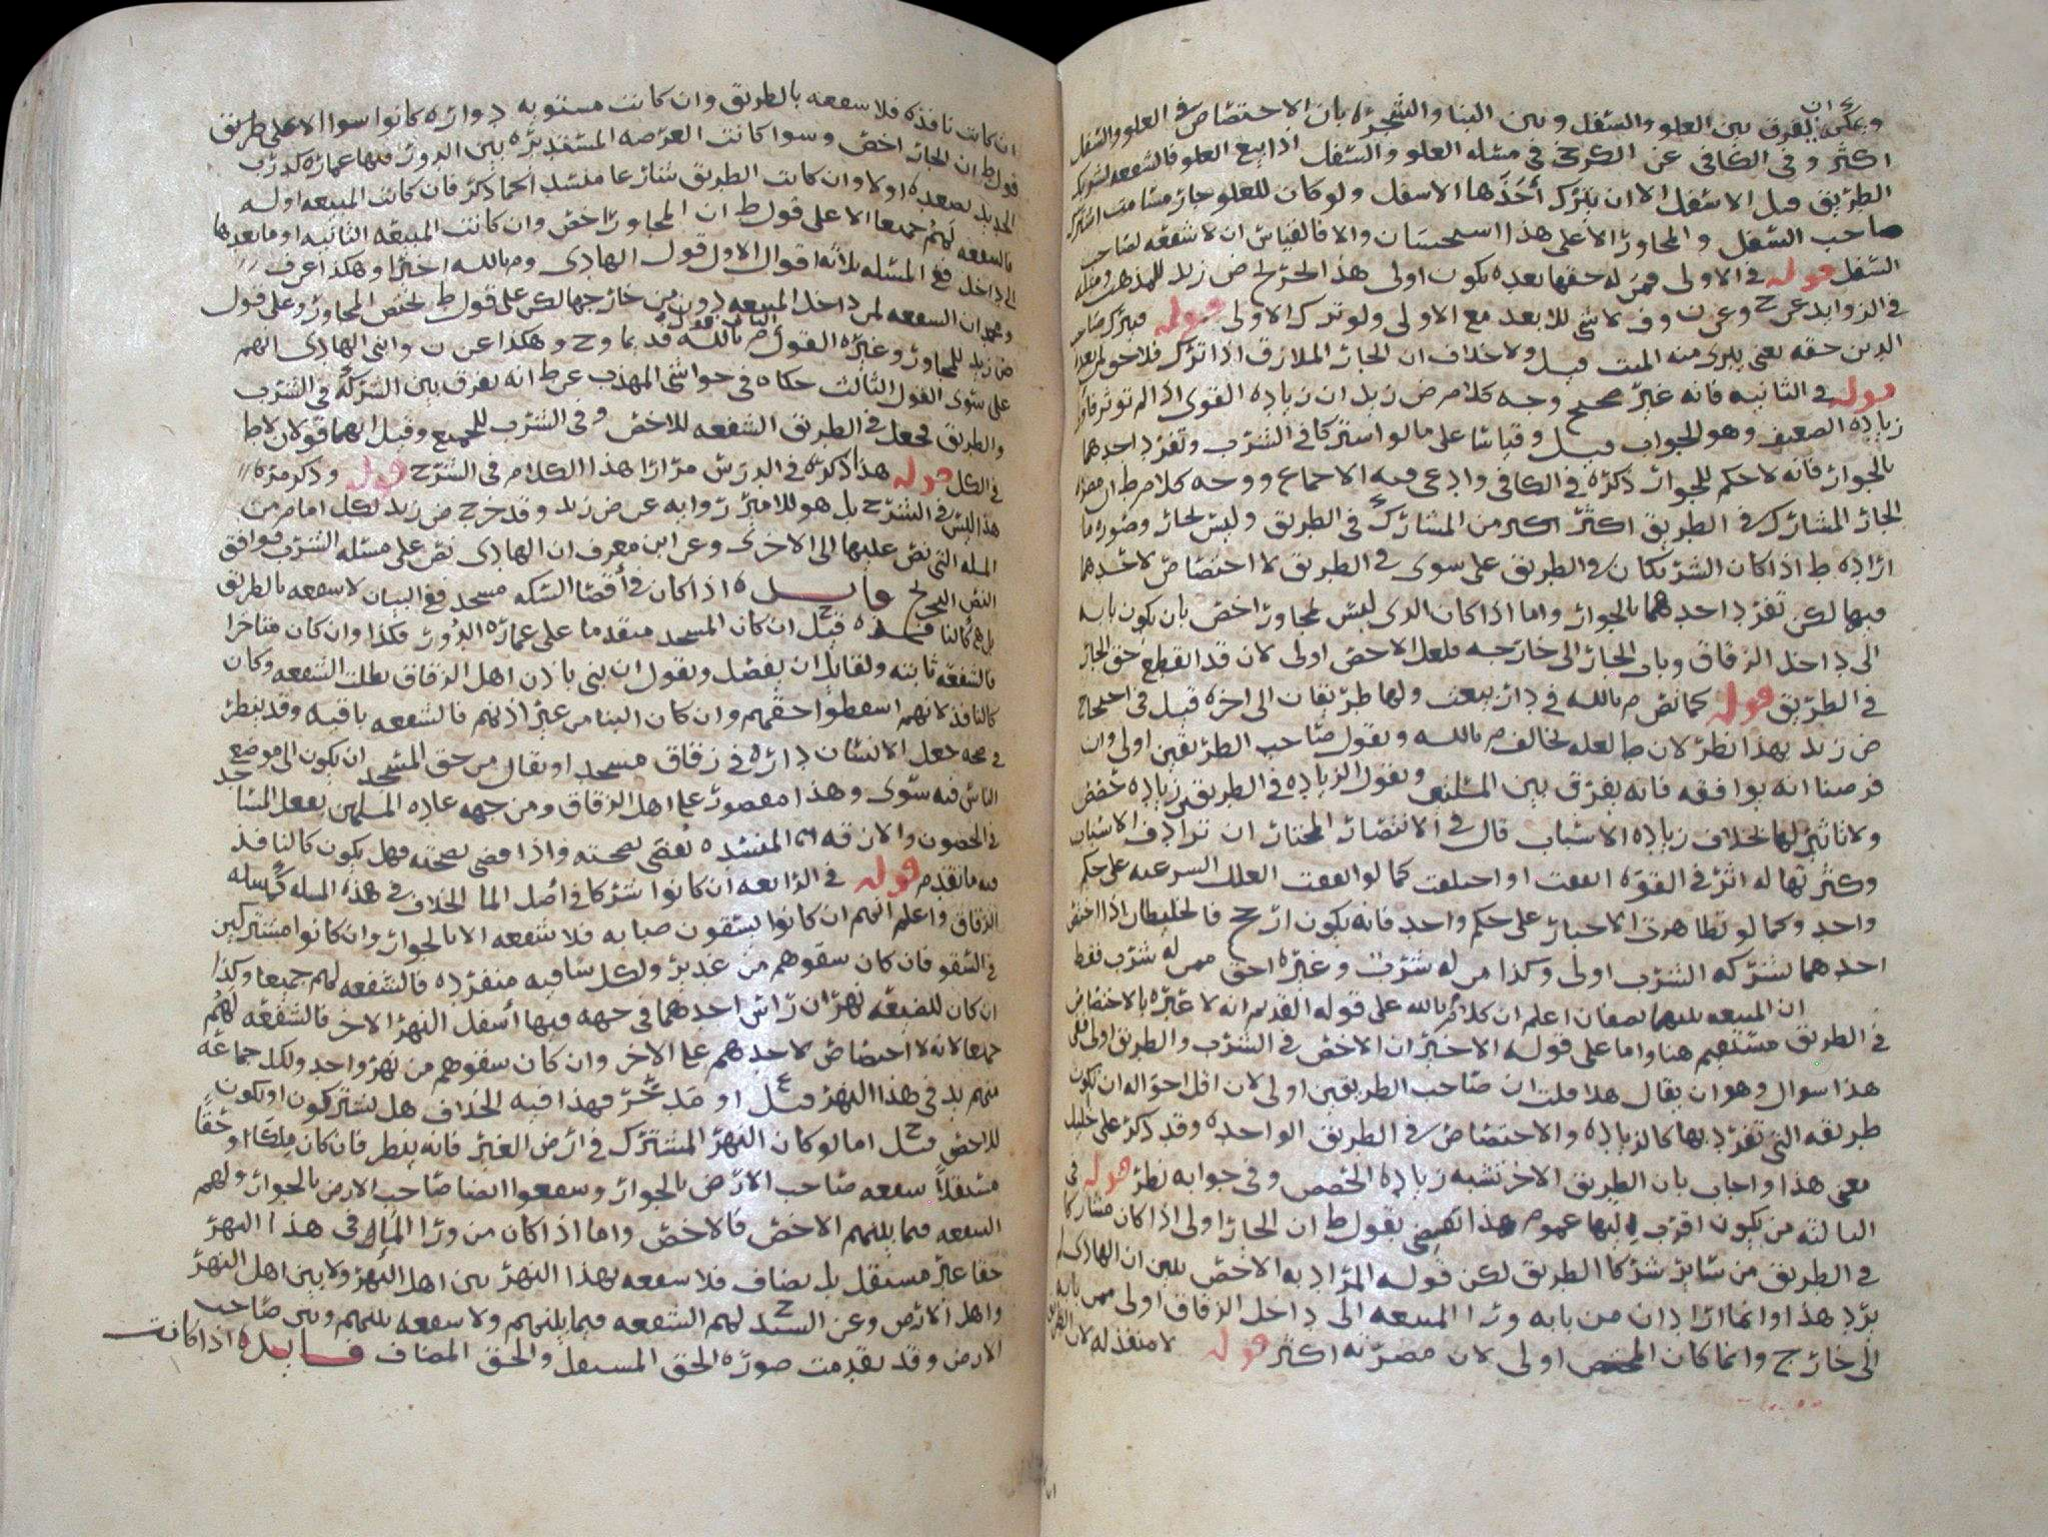 ويمكن ان يفرق بين العلو والسفل وبين البنا والشجر بان الاختصاص في العلو والسفل
اكثر وفي الكافي عن الكرخي في مسله العلو والسفل اذا بيع العلو فالشفعه لشريك
الطريق قبل الاسفل الا ان يترك أخذها الاسفل ولو كان للعلو جار
صاحب السفل والمجاور الاعلى هذا استحسان والا فالقياس ان لا شفعه لصاحب
السفل قوله في الاولى فمن له حقها بعده يكون اولى هذا لحرح ض زيد للمذهب ومثله
في الزوايد عن ح وعن ن وف لا شي للابعد مع الاولى ولو ترك الاولى قوله
الدين حقه يعني يبرى منه الميت قيل ولا خلاف ان الجار الملازق اذا ترك
قوله في الثانيه فانه غير صحيح وجه كلام ض زيد ان زياده القوى اذا لم توثر
زياده الضعيف وهو الجواب قيل وقياسا على ما لو اشتركا في الشرب وتفرد احدهما
بالجوار فانه لا حكم للجوار ذكره في الكافي وادعى فيه الاجماع ووجه كلام ط ان
الجار المشارك في الطريق اكثر من المشارك في الطريق وليس بجار وصوره ما
اراده ط اذا كان الشريكان في الطريق على سوى في الطريق لا اختصاص لاحدهما
فيها لكن تفرد احدهما بالجوار واما اذا كان الذي ليس بمجاور اخص بان يكون بابه
الى داخل الزقاق وباب الجار الى خارجه فلعل الاخص اولى لان قد انقطع حق الجار
في الطريق قوله كما نص م بالله في دار بيعت ولها طريقان الى اخره قيل في احتجاج
ض زيد بهذا نظر لان ط لعله يخالف م بالله ويقول صاحب الطريقين اولى وان
فرضنا انه يوافقه فانه يفرق بين المسلتين ويقول الزياده في الطريقين زياده
ولا تاثير لها بخلاف زياده الاسباب قال في الانتصار المختار ان ترادف الاسباب
وكثرتها له اثر في القوه اتفقت او اختلفت كما لو اتفقت العلل الشرعيه على حكم
واحد وكما لو تظاهرت الاخبار على حكم واحد فانه يكون ارجح فالخليطان اذا اختص
احدهما بشركه الشرب اولى وكذا من له شرب وغيره احق ممن له شرب فقط
ان المبيعه بينهما نصفان اعلم ان كلام م بالله على قوله القديم انه لا عبره بالاختصاص
في الطريق مستقيم هنا واما على قوله الاخير ان الاخص في الشرب والطريق اولى
هذا سوال وهو ان يقال هلا قلت ان صاحب الطريقين اولى لان اقل احواله ان تكون
طريقه التي تفرد بها كالزياده والاختصاص في الطريق الواحده وقد ذكر على خليل
معنى هذا واجاب بان الطريق الاخر تشبه زياده الحصص وفي جوابه نظر قوله في
الثالثه من يكون اقرب اليها عموم هذا يقضي بقول ط ان الجار اولى اذا كان مشاركا
في الطريق من ساير شركا الطريق لكن قوله المراد به الاخص يبين ان الهادي لم
يرد هذا وانما اراد ان من بابه ورا المبيعه الى داخل الزقاق اولى ممن بابه
الى خارج وانما كان المختص اولى لان مضرته اكثر قوله لا منفذ له لان الطريق
ان كانت نافذه فلا شفعه بالطريق وان كانت مستويه دواره كانوا سوا الا على طريق
قول ط ان الجار اخص وسوا كانت العرصه المستديره بين الدور فيها عماره كدرب
الجديد بصعده او لا وان كانت الطريق شارعا منسد كما ذكر فان كانت المبيعه اوله
فالشفعه لهم جميعا الا على قول ط ان المجاور اخص وان كانت المبيعه الثانيه او ما بعدها
الى داخل ففي المسله ثلاثه اقوال الاول قول الهادي وم بالله اخيرا وهكذا عن ف
ومحمد ان الشفعه لمن داخل المبيعه دون من خارجها لكن على قول ط يختص المجاور وعلى قول
ض زيد للمجاور وغيره القول الثاني قول م بالله قديما وح وهكذا عن ن وابني الهادي انهم
على سوى القول الثالث حكاه في حواشي المهذب عن ط انه يفرق بين الشركه في الشرب
والطريق فجعل في الطريق الشفعه للاخص وفي الشرب للجميع وقيل انهما قولان لاط
في الكل قوله هذا ذكره في الدرس مرارا هذا الكلام في الشرح قوله وذكر مره
هذا ليس في الشرح بل هو للامير روايه عن ض زيد وقد خرج ض زيد لكل امام من
المسله التي نص عليها الى الاخرى وعن ابن معرف ان الهادي نص على مسله الشرب فوافق
النص التخريج فايده اذا كان في أقصا السكه مسجد ففي البيان لا شفعه بالطريق
بل هي كالنافذه قيل ح ان كان المسجد متقدما على عماره الدور فكذا وان كان متاخرا
فالشفعه ثابته ولقايل ان يفصل ويقول ان بني باذن اهل الزقاق بطلت الشفعه وكان
كالنافذ لانهم اسقطوا حقهم وان كان البنا من غير اذنهم فالشفعه باقيه وقد ينظر
في صحه جعل الانسان داره في زقاق مسجدا ويقال من حق المسجد ان يكون الى موضع
الناس فيه سوى وهذا مقصور على اهل الزقاق ومن جهه عاده المسلمين بفعل المساجد
في الحصون والازقه المنسده تقضي بصحته واذا قضي بصحته فهل يكون كالنافذ
فيه ما تقدم قوله في الرابعه ان كانوا شركا في اصل الما الخلاف في هذه المسله كمسله
الزقاق واعلم انهم ان كانوا يسقون صبابه فلا شفعه الا بالجوار وان كانوا مشتركين
في السقو فان كان سقوهم من غدير ولكل ساقيه منفرده فالشفعه لهم جميعا وكذا
ان كان للضيعه نهران راس احدهما في جهه فيها أسفل النهر الاخر فالشفعه لهم
جميعا لانه لا اختصاص لاحدهم على الاخر وان كان سقوهم من نهر واحد ولكل جماعه
منهم يد في هذا النهر قيل ع او مجر فهذا فيه الخلاف هل يشتركون او يكون
للاخص قيل ح اما لو كان النهر المشترك في ارض الغير فانه ينظر فان كان ملكا او حقا
مستقلا شفعه صاحب الارض بالجوار وشفعوا ايضا صاحب الارض بالجوار ولهم
الشفعه فيما بينهم الاخص فالاخص واما اذا كان من ورا المال في هذا النهر
حقا غير مستقل بل يضاف فلا شفعه بهذا النهر بين اهل النهر ولا بين اهل النهر
واهل الارض وعن السيد ح لهم الشفعه فيما بينهم ولا شفعه بينهم وبين صاحب
الارض وقد تقدمت صوره الحق المستقل والحق المضاف فايده اذا كانت